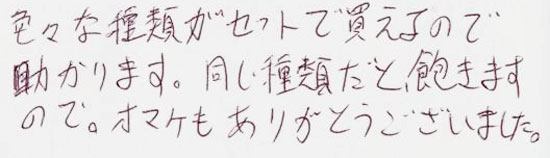 色々な種類がセットで買えるので
助かります。同じ種類だと、飽きます
ので。オマケもありがとうございました。